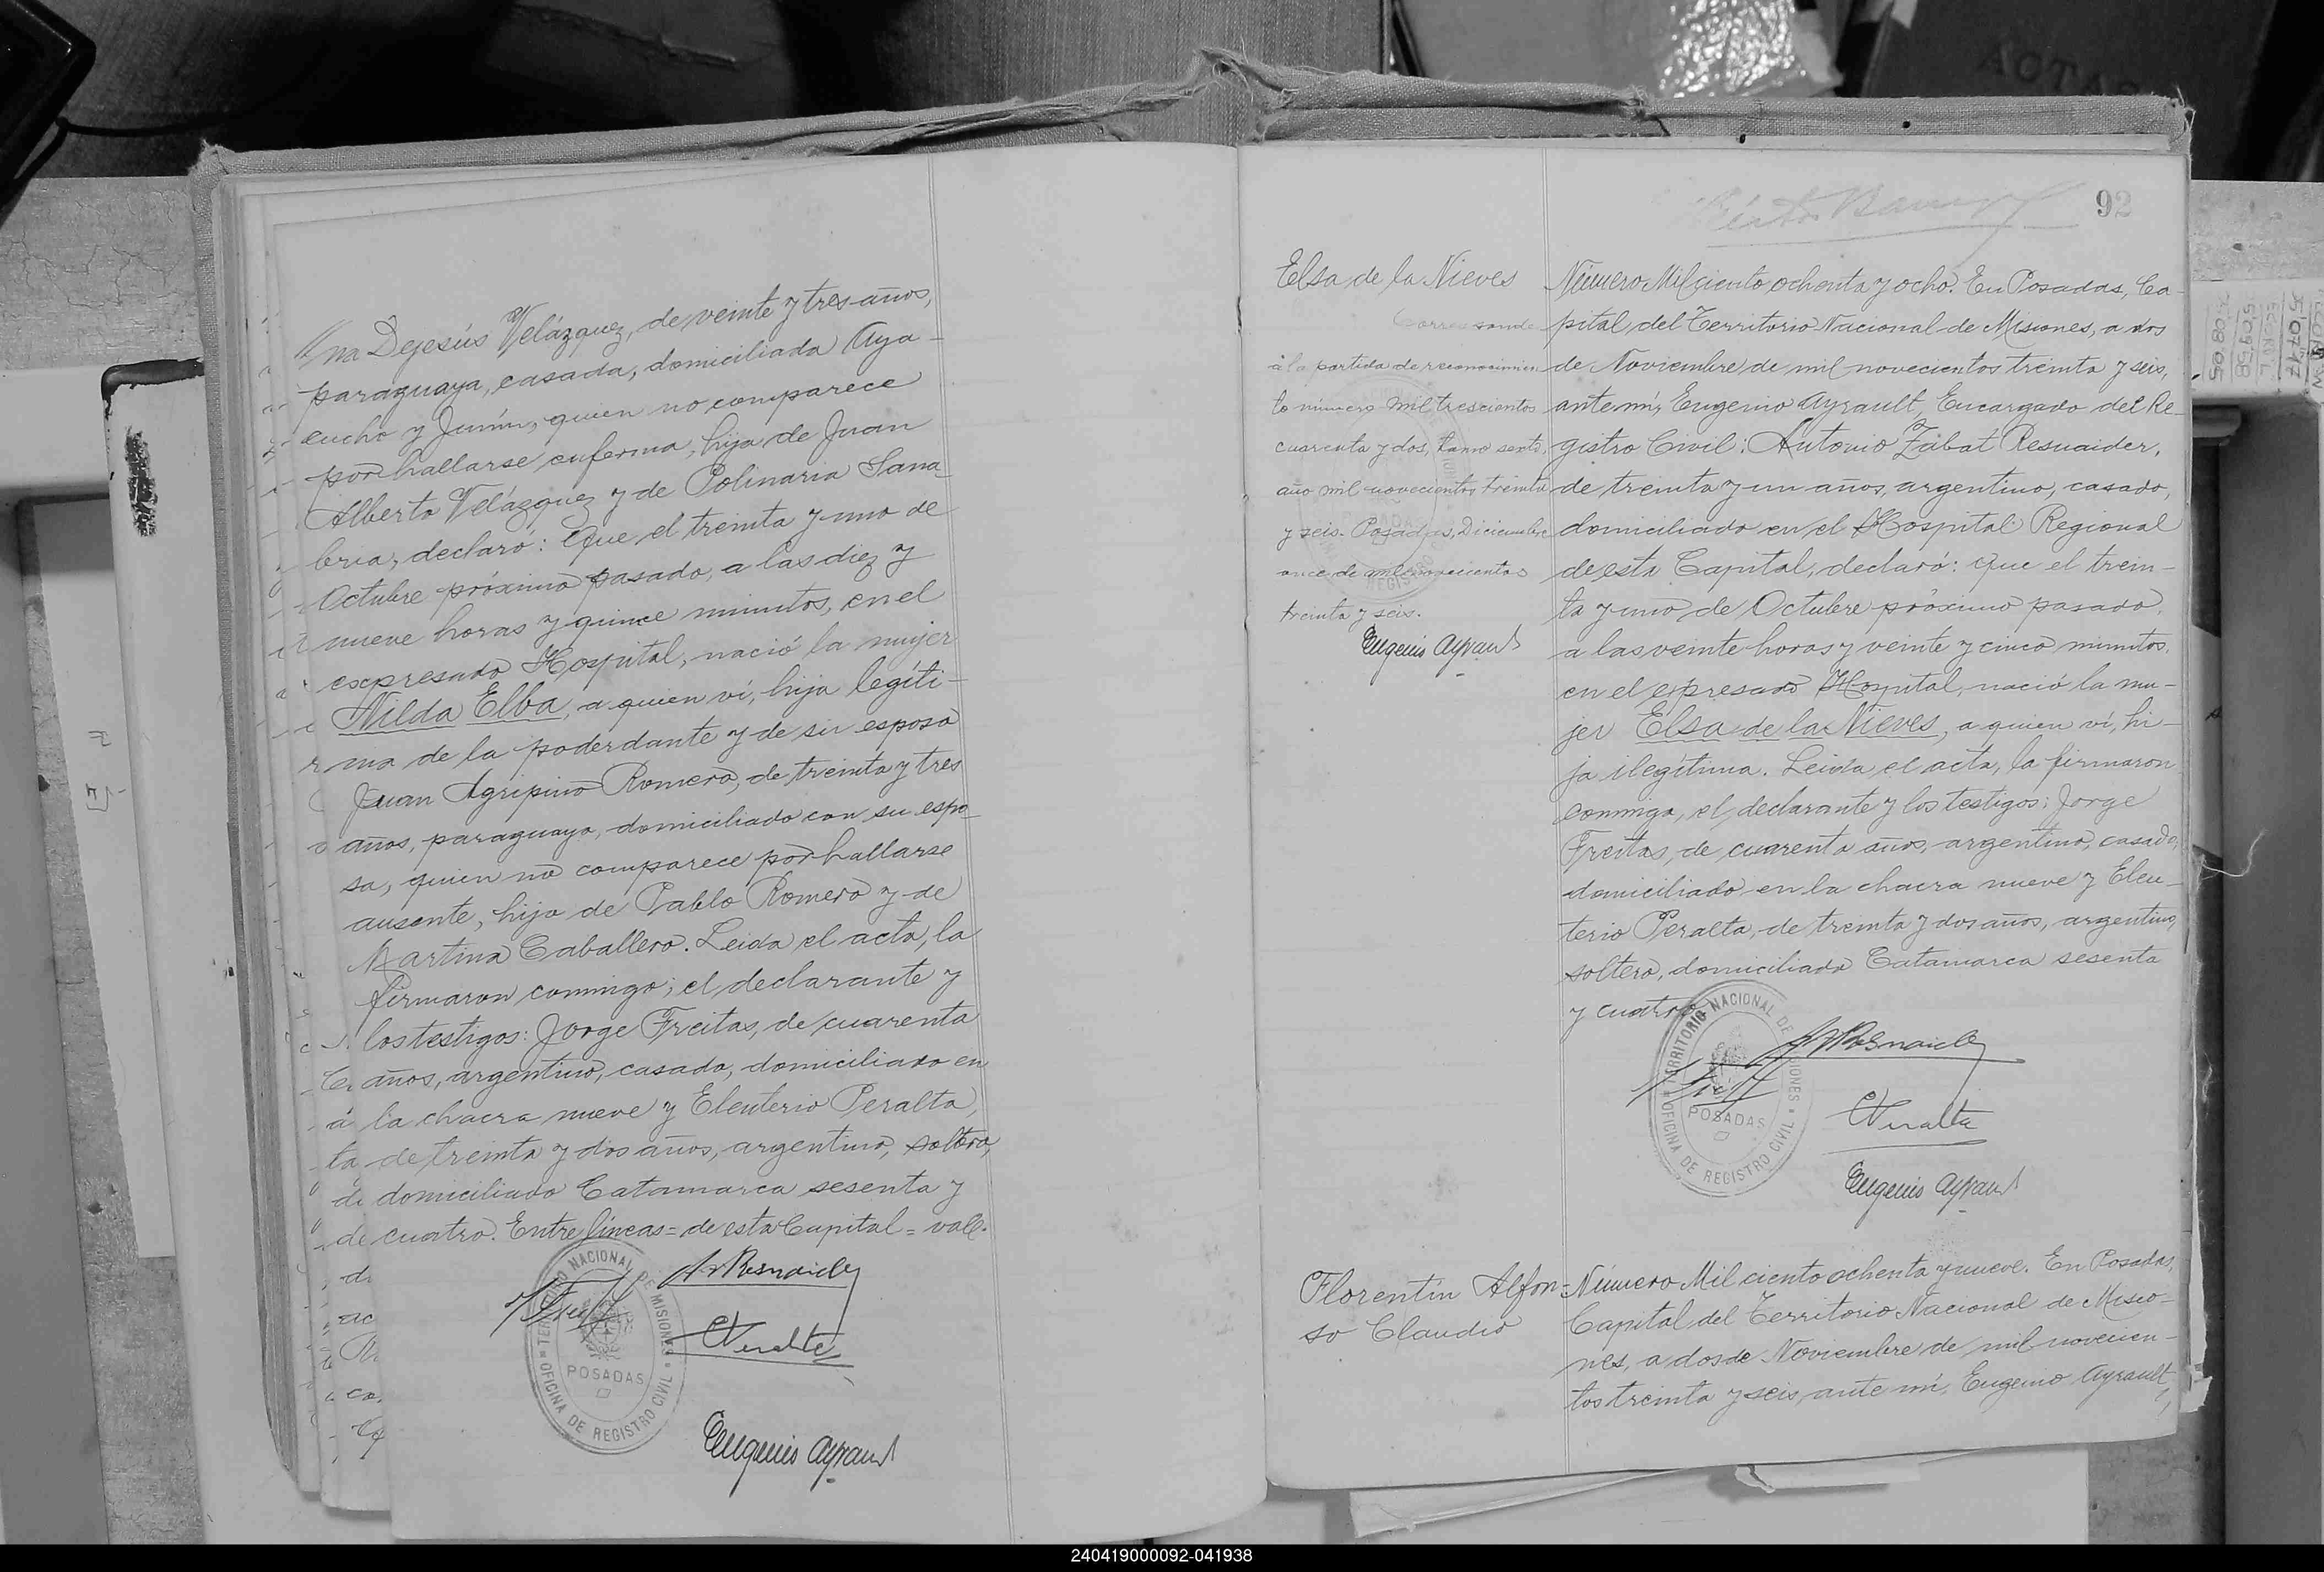 Ana Dejesús Velázquez, de veinte y tres años,
paraguaya, casada, domiciliada Aya-
cucho y Junín, quien no comparece
por hallarse enferma, hija de Juan
Alberto Velázquez y de Polinaria Sana-
bria, declaró: Que el treinta y uno de
Octubre próximo pasado, a las diez y
nueve horas y quince minutos, en el
expresado Hospital, nació la mujer
Nilda Elba, a quien ví, hija legíti-
ma de la poderdante y de su esposo
Juan Agripino Romero, de treinta y tres
años, paraguayo, domiciliado con su espo-
sa, quien no comparece por hallarse
ausente, hijo de Pablo Romero y de
Martina Caballero. Leida el acta, la
firmaron conmigo; el declarante y
los testigos: Jorge Freitas, de cuarenta
años, argentino, casado, domiciliado en
la chacra nueve y Eleuterio Peralta,
de treinta y dos años, argentino, soltero,
domiciliado Catamarca sesenta y
cuatro. Entre líneas = de esta Capital = vale.
TERRITORIO NACIONAL DE MISIONES
POSADAS
OFICINA DE REGISTRO CIVIL
Resnaider
Peralta
Eugenio Ayrault
92
Elsa de la Nieves
Corresponde
à la partida de reconocimien
to número mil trescientos
cuarenta y dos, tomo sexto,
año mil novecientos treinta
y seis. Posadas, Diciembre
once de mil novecientos
treinta y seis.
Eugenio Ayrault
Número Mil ciento ochenta y ocho. En Posadas, Ca-
pital del Territorio Nacional de Misiones, a dos
de Noviembre de mil novecientos treinta y seis,
ante mí, Eugenio Ayrault, Encargado del Re-
gistro Civil: Antonio Zabat Resnaider,
de treinta y un años, argentino, casado,
domiciliado en el Hospital Regional
de esta Capital, declaró: Que el trein-
ta y uno de Octubre próximo pasado,
a las veinte horas y veinte y cinco minutos,
en el expresado Hospital, nació la mu-
jer Elsa de la Nieves, a quien ví, hi-
ja ilegítima. Leida el acta, la firmaron
conmigo, el declarante y los testigos: Jorge
Freitas, de cuarenta años, argentino, casado,
domiciliado en la chacra nueve y Eleu-
terio Peralta, de treinta y dos años, argentino,
soltero, domiciliado Catamarca sesenta
y cuatro
TERRITORIO NACIONAL DE MISIONES
POSADAS
OFICINA DE REGISTRO CIVIL
Resnaider
Peralta
Eugenio Ayrault
Florentín Alfon-
so Claudio
Número Mil ciento ochenta y nueve. En Posadas,
Capital del Territorio Nacional de Misio-
nes, a dos de Noviembre de mil novecien-
tos treinta y seis, ante mí, Eugenio Ayrault,
240419000092-041938